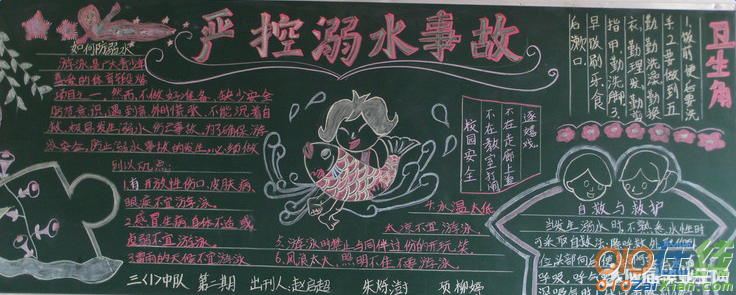 严控溺水事故
如何防溺水
游泳是广大青少年
喜爱的体育锻炼
项目之一。然而,不做好准备、缺少安全
防范意识,遇到意外时慌张、不能沉着自
救,极易发生溺水伤亡事故。为了确保游
泳安全,防止溺水事故的发生,必须做
到以下几点:
1.有开放性伤口、皮肤病、
眼疾不宜游泳。
2.感冒生病、身体不适或
虚弱不宜游泳。
3.雷雨的天候不宜游泳
4.水温太低
太凉不宜游泳。
5.游泳时禁止与同伴过份的开玩笑
6.风浪太大、照明不佳不要游泳。
三〈1〉中队 第二期 出刊人:赵启超 朱烁澍 项柳婷
校园安全
不在教室打闹
不在走廊上追
逐嬉戏
卫生角
1.饭前便后要洗
手2.要做到五
勤:勤洗澡勤换
衣、勤理发勤剪
指甲勤洗脚3.
早饭刷牙食
后漱口
自救与救护
当发生溺水时不熟悉水性时
可采取自救法:除呼救外
位头部向后使
呼吸,呼气